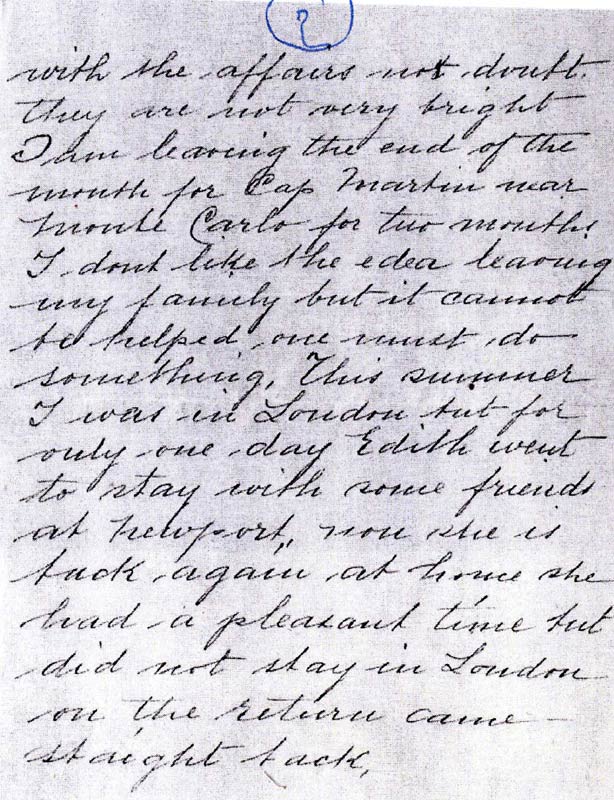 2
with the affairs not doubt.
they are not very bright
I am leaving the end of the
month for Cap Martin near
Monte Carlo for two months
I dont like the edea leaving
my family but it cannot
be helped, one must do
something, This summer
I was in London but for
only one day Edith went
to stay with some friends
at Newport, now she is
back again at home she
had a pleasant time but
did not stay in London
on the return came
staight back,